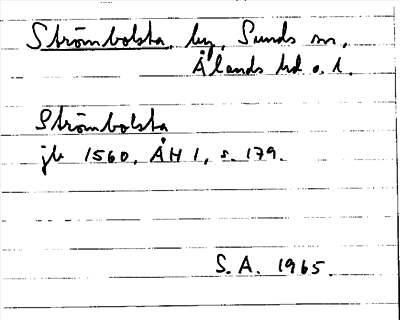 Strömbolsta, by, Sunds sn,
Ålands hd o. l.
Strömbolsta
jb 1560, ÅH 1, s. 179.
S.A. 1965.